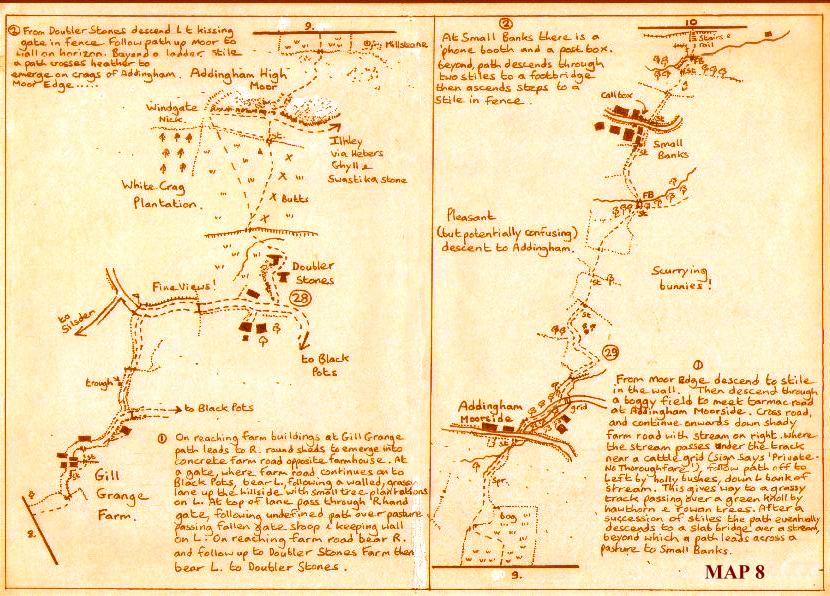 ② From Doubler Stones descend Lt kissing
gate in fence. Follow path up Moor to
wall on horizon. Beyond a ladder stile
a path crosses heather to
emerge on crags of Addingham.
Moor Edge.....
9.
Millstone
Addingham High
Moor
Windgate
Nick.
st
Ilkley
via Hebers
Ghyll &
Swastika stone
White Crag
Plantation.
Butts
Doubler
Stones
28
Fine Views!
to
Silsden
to Black
Pots
trough
to Black Pots
st
st
Gill
Grange
Farm.
8.
① On reaching farm buildings at Gill Grange
path leads to R. round sheds to emerge into
concrete farm road opposite farmhouse. At
a gate, where farm road continues on to
Black Pots, bear L. following a walled, grass
lane up the hillside with small tree plantations
on L. At top of lane pass through R.hand
gate, following undefined path over pasture
passing fallen gate. stoop & keeping wall
on L. On reaching farm road bear R.
and follow up to Doubler Stones Farm then
bear L. to Doubler Stones.
②
At Small Banks there is a
'phone booth and a post box.
beyond, path descends through
two stiles to a footbridge
then ascends steps to a
Stile in fence.
10
Stairs &
rail
st
Callbox
st
Small
Banks
st
FB
st
Pleasant
(but potentially confusing)
descent to Addingham.
Scurrying
bunnies!
st
st
29
Addingham
Moorside
grid
st
Spr.
bog
9.
①
From Moor Edge descend to stile
in the wall. Then descend through
a boggy field to meet tarmac road
at Addingham Moorside. Cross road,
and continue onwards down shady
farm road with stream on right. Where
the stream passes under the track
near a cattle grid (sign says 'Private.
No Thoroughfare'), follow path off to
Left by holly bushes, down L bank of
stream. This gives way to a grassy
track passing over a green knoll by
hawthorn & rowan trees. After a
succession of stiles the path eventually
descends to a slab bridge over a stream,
beyond which a path leads across a
pasture to Small Banks.
MAP 8